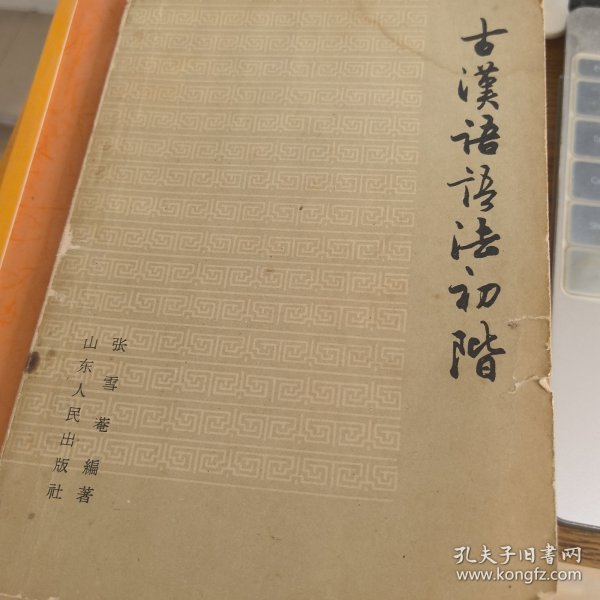 古漢語語法初階
张雪菴編著
山东人民出版社
孔夫子旧书网
www.kongfz.com